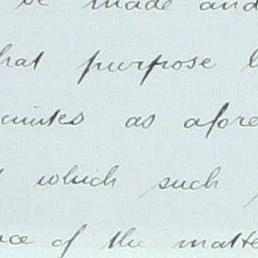 be made and
hat purpose
as afore
which such
of the matte